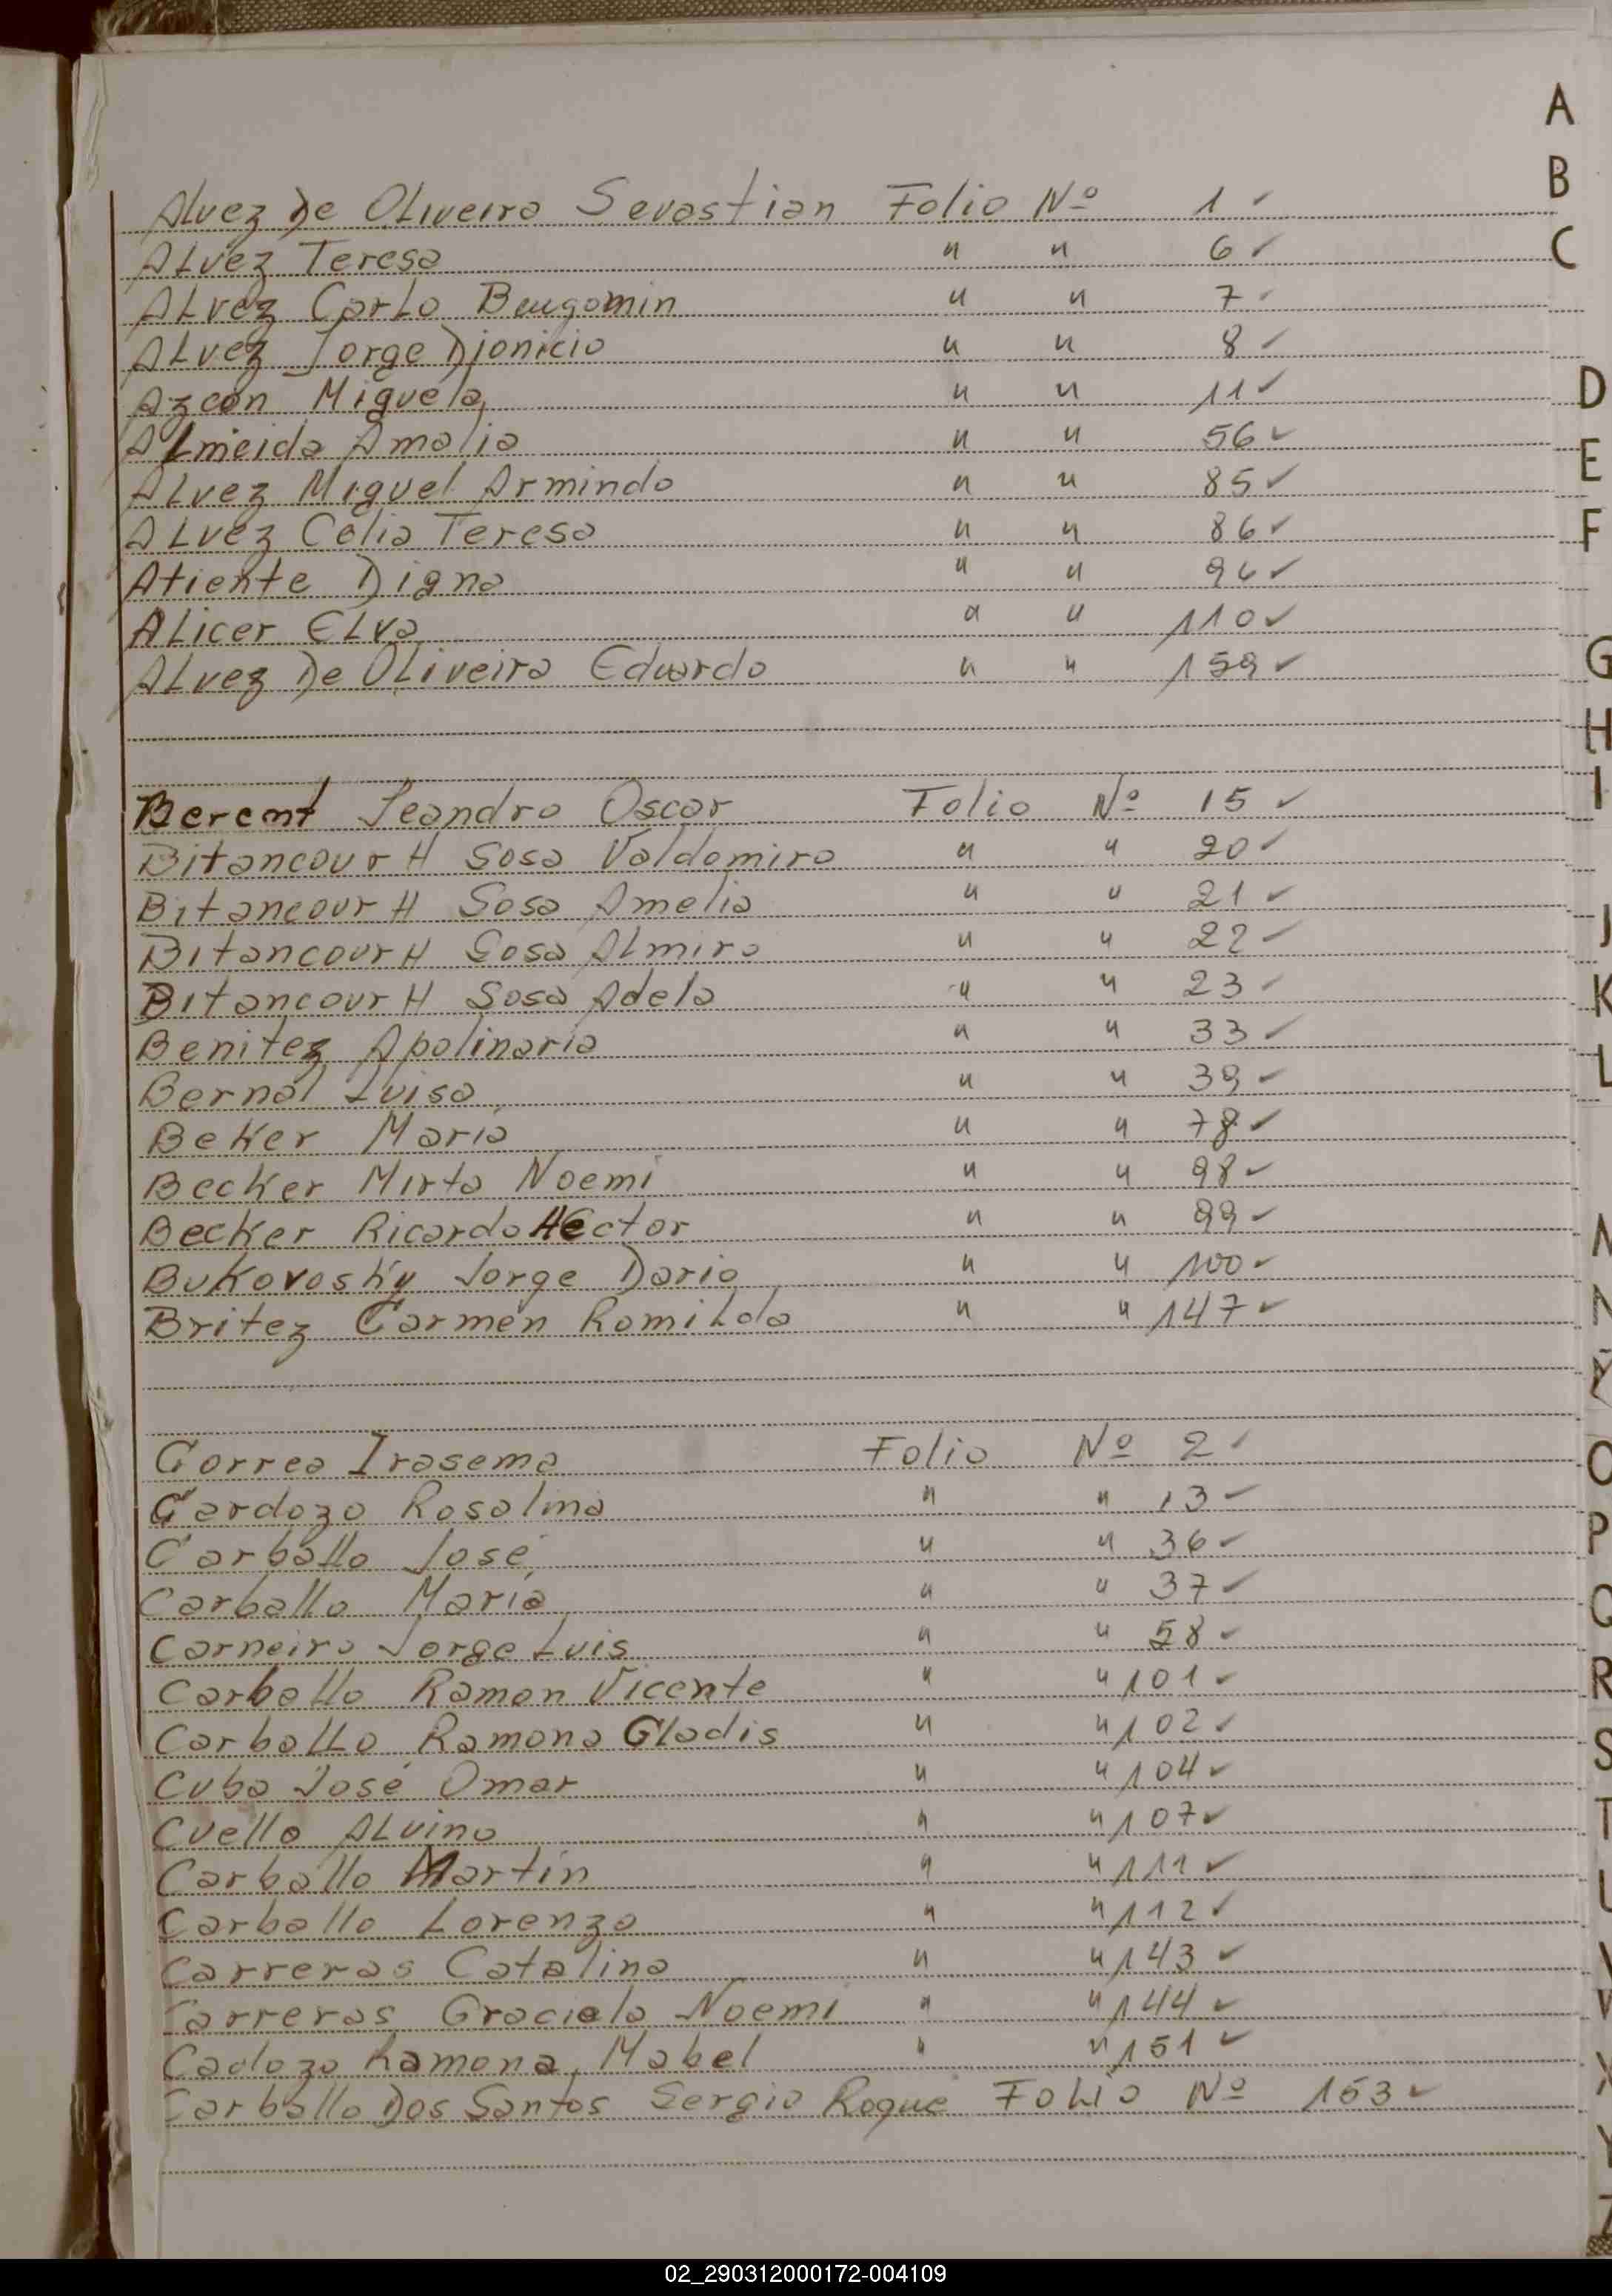 A
B
C
D
E
F
G
H
I
J
K
L
O
P
Q
R
S
T
U
V
Alvez De Oliveira Sevastian Folio Nº 1 ✓
Alvez Teresa " " 6 ✓
Alvez Carlo Bengamin " " 7 ✓
Alvez Jorge Dionicio " " 8 ✓
Azcon Miguela " " 11 ✓
Almeida Amalia " " 56 ✓
Alvez Miguel Armindo " " 85 ✓
Alvez Celia Teresa " " 86 ✓
Atiente Digna " " 96 ✓
Alicer Elva " " 110 ✓
Alvez De Oliveira Eduardo " " 159 ✓
Berent Leandro Oscar Folio Nº 15 ✓
BitancourH Sosa Valdomiro " " 20 ✓
BitancourH Sosa Amelia " " 21 ✓
BitancourH Sosa Almiro " " 22 ✓
BitancourH Sosa Adela " " 23 ✓
Benitez Apolinaria " " 33 ✓
Bernal Luisa " " 39 ✓
Beker Maria " " 78 ✓
Becker Mirta Noemi " " 98 ✓
Becker Ricardo Hector " " 99 ✓
Bukovosky Jorge Dario " " 100 ✓
Britez Carmen Romilda " " 147 ✓
Correa Irasema Folio Nº 2 ✓
Cardozo Rosalina " " 13 ✓
Carballo José " " 36 ✓
Carballo Maria " " 37 ✓
Carneiro Jorge Luis " " 58 ✓
Carballo Ramon Vicente " " 101 ✓
Carballo Ramona Gladis " " 102 ✓
Cuba José Omar " " 104 ✓
Cuello Alvino " " 107 ✓
Carballo Martin " " 111 ✓
Carballo Lorenzo " " 112 ✓
Carreras Catalina " " 143 ✓
Carreras Graciela Noemi " " 144 ✓
Cadozo Ramona Mabel " " 151 ✓
Carballo Dos Santos Sergio Roque Folio Nº 153 ✓
02_290312000172-004109